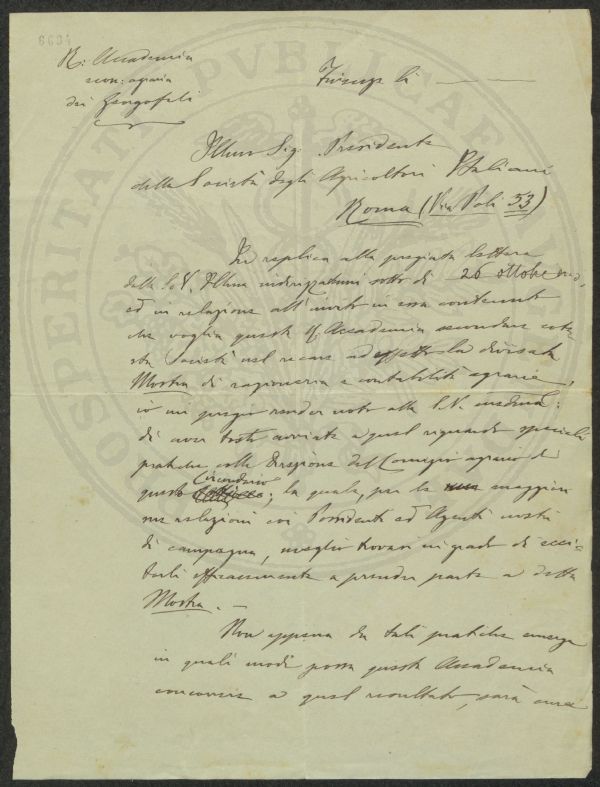 6694
R. Accademia
econ: agraria
dei Georgofili
Firenze li
Illmo Sig. Presidente
della Società degli Agricoltori Italiani
Roma (Via Poli 53)
In replica alla pregiata lettera
della S.V. Illma indirizzatami sotto di 26 ottobre
ed in relazione all'invito in essa contenuto
che voglia questa R. Accademia secondare
sta Società nel recare ad effetto la divisata
Mostra di ragioneria e contabilità agraria,
io mi pregio render noto alla S.V. medema:
di aver tosto avviate a quel riguardo speciali
pratiche colla Direzione del Comizio agrario di
questo Circondario; la quale, per le maggiori
sue relazioni coi Possidenti ed Agenti nostri
di campagna, meglio trovasi in grado di ecci-
tarli efficacemente a prendere parte a detta
Mostra. —
Non appena da tali pratiche emerga
in quali modi possa questa Accademia
concorrere a quel resultato, sarà
PROSPERITATI PVBLICAE